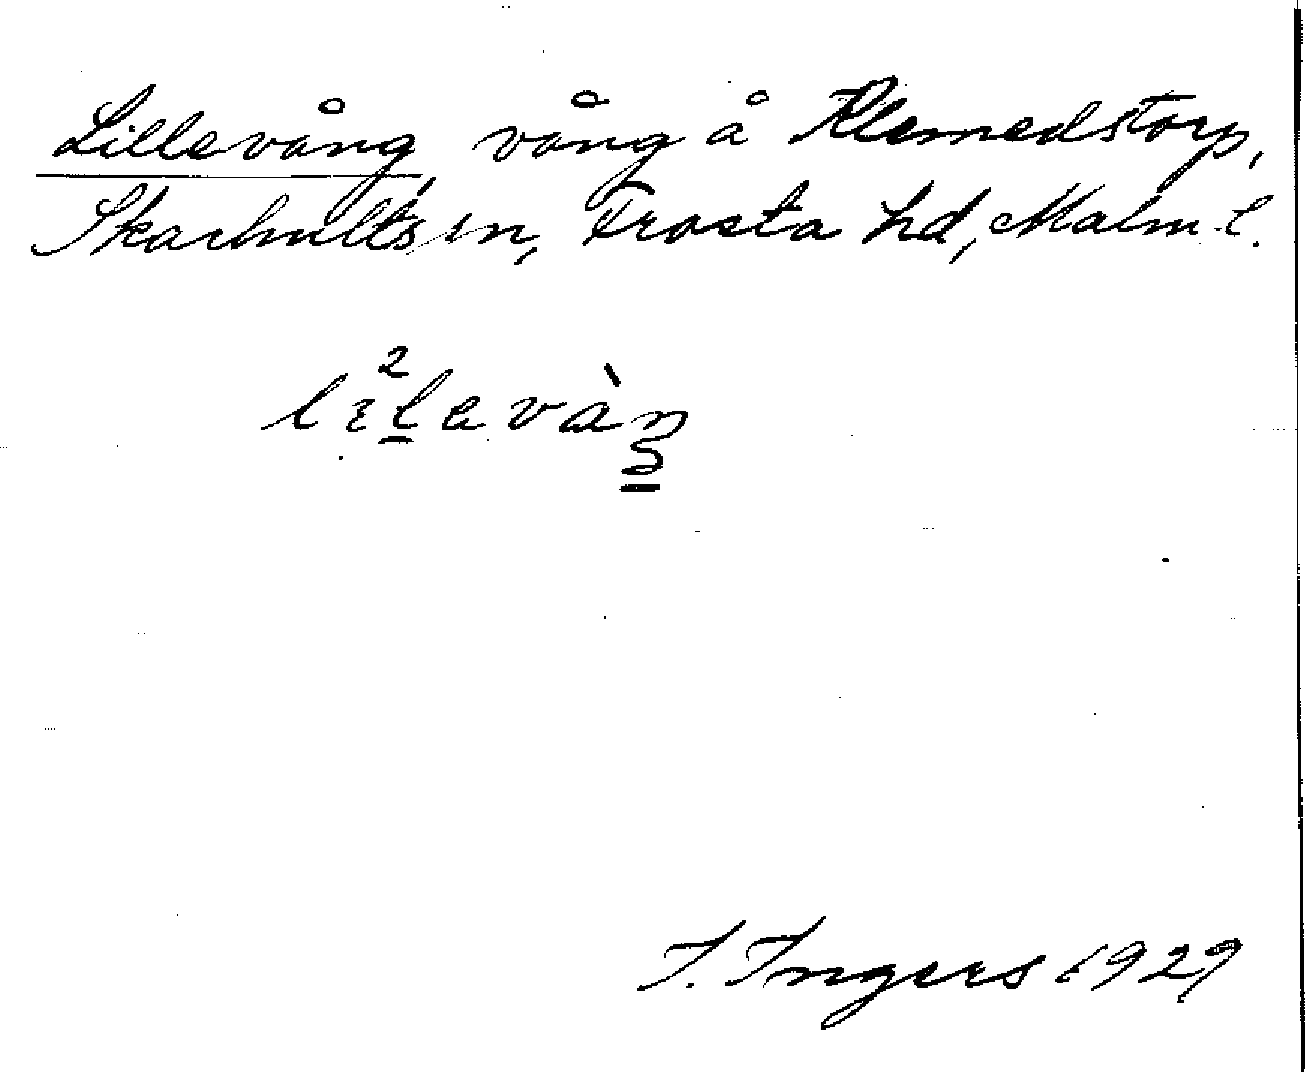 Lillevång, vång å Klemedstorp,
Skarhults sn, Frosta hd, Malm. l.
lɪ²ḻavàŋ
I. Ingers 1929